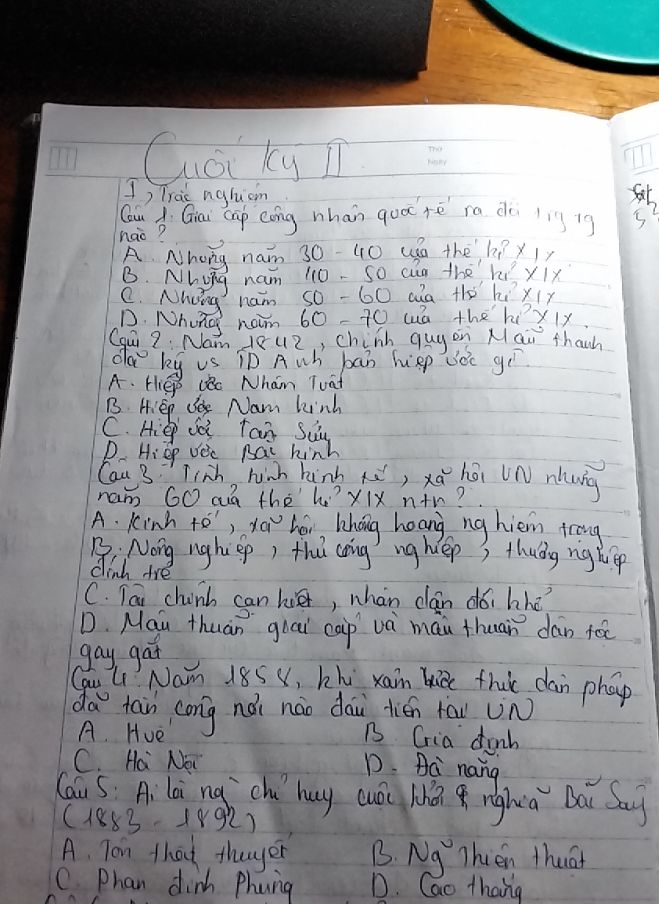 Thứ
Ngày
Cuối kỳ II
I, Trắc nghiệm
Câu 1: Giai cấp công nhân quốc tế ra đời tr g tg
nào?
A. Những năm 30 - 40 của thế kỉ XIX
B. Những năm 40 - 50 của thế kỉ XIX
C. Những năm 50 - 60 của thế kỉ XIX
D. Những năm 60 - 70 của thế kỉ XIX.
Câu 2: Năm 1842, chính quyền Mãn thanh
đã ký vs TD Anh bản hiệp ước gì
A. Hiệp ước Nhâm Tuất
B. Hiệp ước Nam kinh
C. Hiệp ước Tân Sửu
D. Hiệp ước Bắc kinh
Câu 3: Tình hình kinh tế, xã hội VN những
năm 60 của thế kỉ XIX ntn?
A. Kinh tế, xã hội khủng hoảng nghiêm trọng
B. Nông nghiệp, thủ công nghiệp, thương nghiệp
đình trệ
C. Tài chính cạn kiệt, nhân dân đói khổ
D. Mâu thuẫn giai cấp và mâu thuẫn dân tộc
gay gắt
Câu 4: Năm 1858, khi xâm lược thực dân pháp
đã tấn công nơi nào đầu tiên tại VN
A. Huế B. Gia định
C. Hà Nội D. Đà nẵng
Câu 5: Ai là ng chỉ huy cuộc khởi nghĩa Bãi Sậy
(1883 - 1892)
A. Tôn thất thuyết B. Ng~ Thiện thuật
C. Phan đình Phùng D. Cao thắng